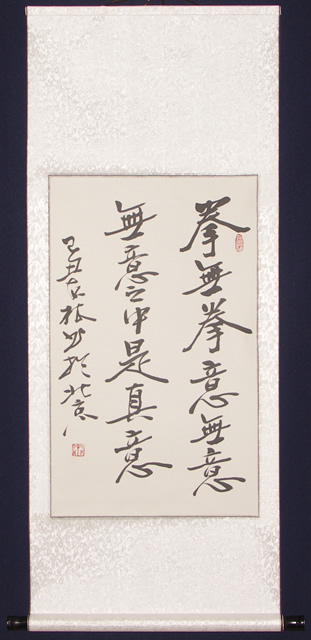 拳無拳意無意
無意之中是真意
己丑 於北京